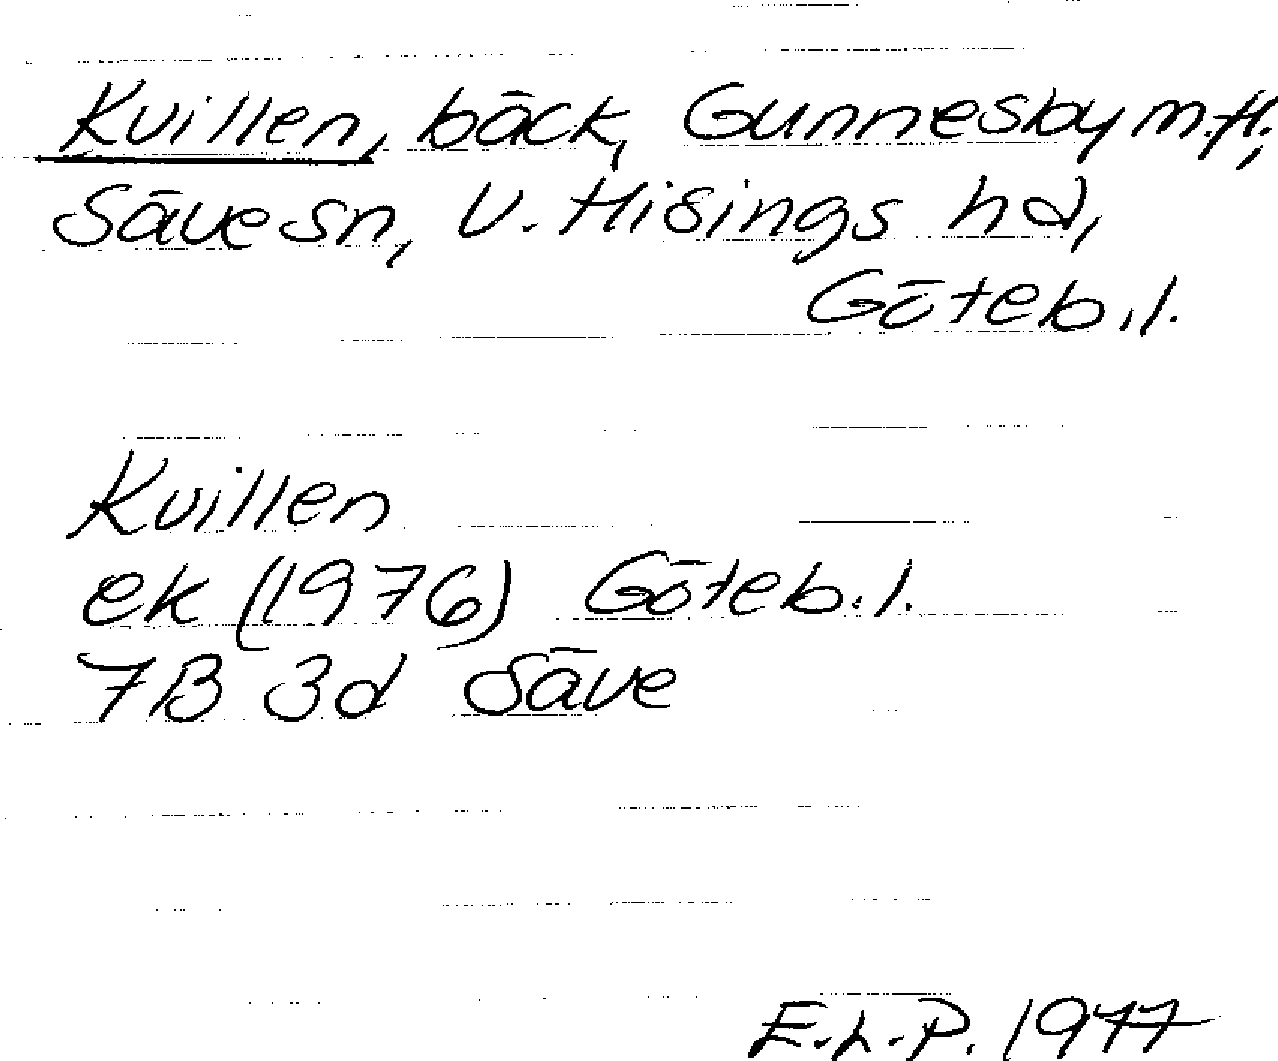 Kvillen, bäck, Gunnesby m.fl.,
Säve sn, V. Hisings hd,
Göteb. l.
Kvillen
ek (1976) Göteb. l.
7B 3d Säve
E.L.P. 1977